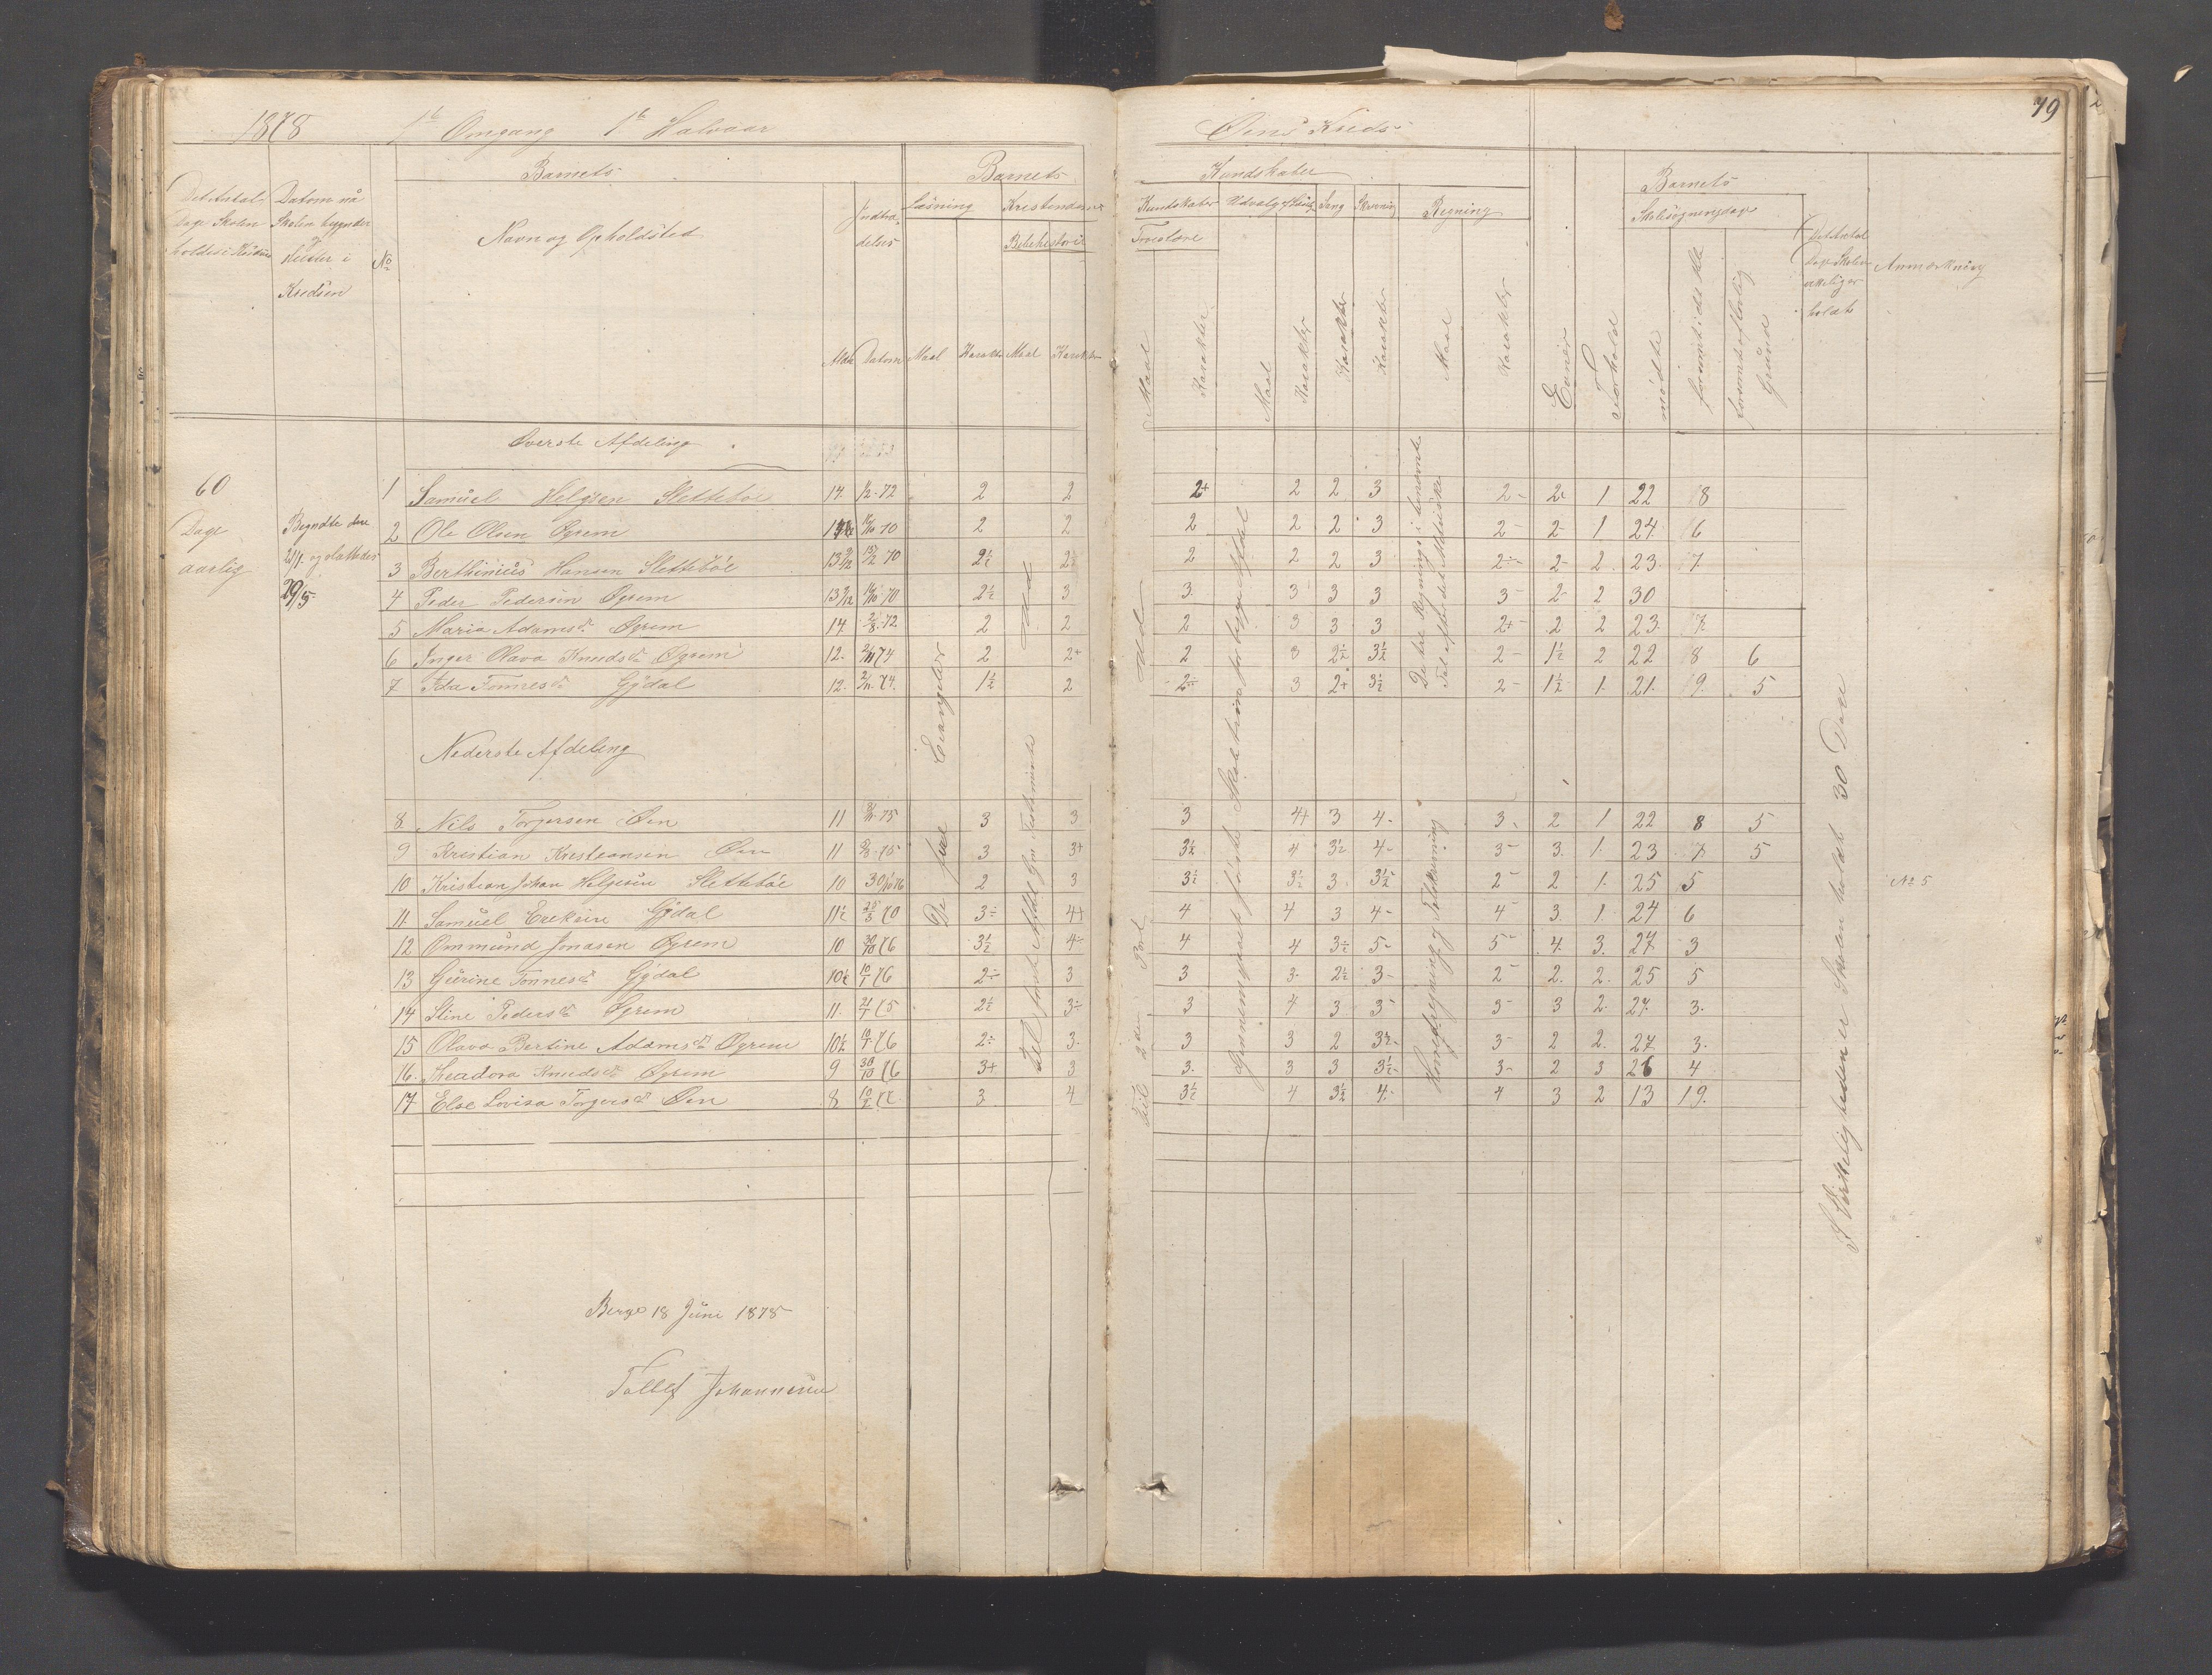 79
1878 1ste Omgang 1ste Halvaar Øens Kreds
Barnets Barnets Kundskaber Barnets
Det Antal Dage Skolen holdes i Kredsen
Datum naar Skolen begynder og slutter i Kredsen
No
Navn og Opholdsted
Indtrædelses
Alder Datum
Læsning Kristendoms Kundskaber Udvalg af Læseb. Sang Skrivning Regning
Maal Karakter
Bibelhistorie
Maal Karakter
Troeslære
Maal Karakter
Maal Karakter Karakter Karakter Maal Karakter
Evner
Forhold
Skolesøgningsdage
mødte
forsømt i det Hele
forsømt af lovlig Grund
Det Antal Dage Skolen virkelig er holdt
Anmærkning
60 Dage aarlig
Begyndte den 21/1 og sluttedes 29/5
Øverste Afdeling
1 Samuel Helgesen Slettebøe 14 1/2-72 2 2 2+ 2 2 3 2- 2- 1 22 8
2 Ole Olsen Øgrem 10/10 70 2 2 2 2 2 3 2- 2- 1 24 6
3 Berthinius Hansen Slettebøe 13 9/12 13/2 70 2½ 2½ 2 2 2 3 2- 2- 2 23 7
4 Peder Pedersen Øgrem 13 9/12 10/10 70 2½ 3 3 3 3 3 3- 2- 2 30
5 Maria Adamsd. Øgrem 14 2/8-72 2 2 2 3 3 3 2+ 2 2 23 7
6 Inger Olava Knudsd. Øgrem 12 2/11 74 2 2+ 2 3 2½ 3½ 2- 1½ 2 22 8 6
7 Ida Tønnesd. Gydal 12 2/11 74 1½ 2 2÷ 3 2+ 3½ 2- 1½ 1 21 9 5
Nederste Afdeling
8 Nils Torgersen Øen 11 8/11-75 3 3 3 4+ 3 4- 3- 2 1 22 8 5
9 Kristian Kristiansen Øen 11 2/8-75 3 3+ 3½ 4 3½ 4- 3- 3 1 23 7 5
10 Kristian Johan Helgesen Slettebøe 10 30/10 76 2 3 3½ 3½ 3 3½ 2- 2 1 25 5 No 5
11 Samuel Ereksen Gydal 11½ 28/3 70 3÷ 4+ 4 4 3 4- 4- 3 1 24 6
12 Ommund Jonasen Øgrem 10 30/10 76 3½ 4÷ 4 4 3½ 5- 5- 4 3 27 3
13 Gurine Tønnesd. Gydal 10½ 10/1 76 2÷ 3 3 3 2½ 3- 2- 2 2 25 5
14 Stine Pedersd. Øgrem 11 21/1 75 2½ 3÷ 3 4 3 3- 3- 3 2 27 3
15 Olava Bertine Adamsd. Øgrem 10½ 10/1 76 2÷ 3 3 3 2 3½ 3- 2 2 27 3
16 Theadora Knudsd. Øgrem 9 30/10 76 3+ 3 3 3 3 3½ 3- 2 3 26 4
17 Else Lovisa Torgersd. Øen 8 10/2 77 3 4 3½ 4 3½ 4 4 3 2 13 19
De fire Evangelier
ud
Det første Afdel Gm Testamente
ud
Til 2den Part
Gjennemgaaet første Skoletrin forbigaaet
De fire Regningsi i benævnte Tal
Hovedregning og Tabelregning
I Virkeligheden er Skolen holdt 30 Dage
Berge 18 Juni 1878
Tollef Johannesen